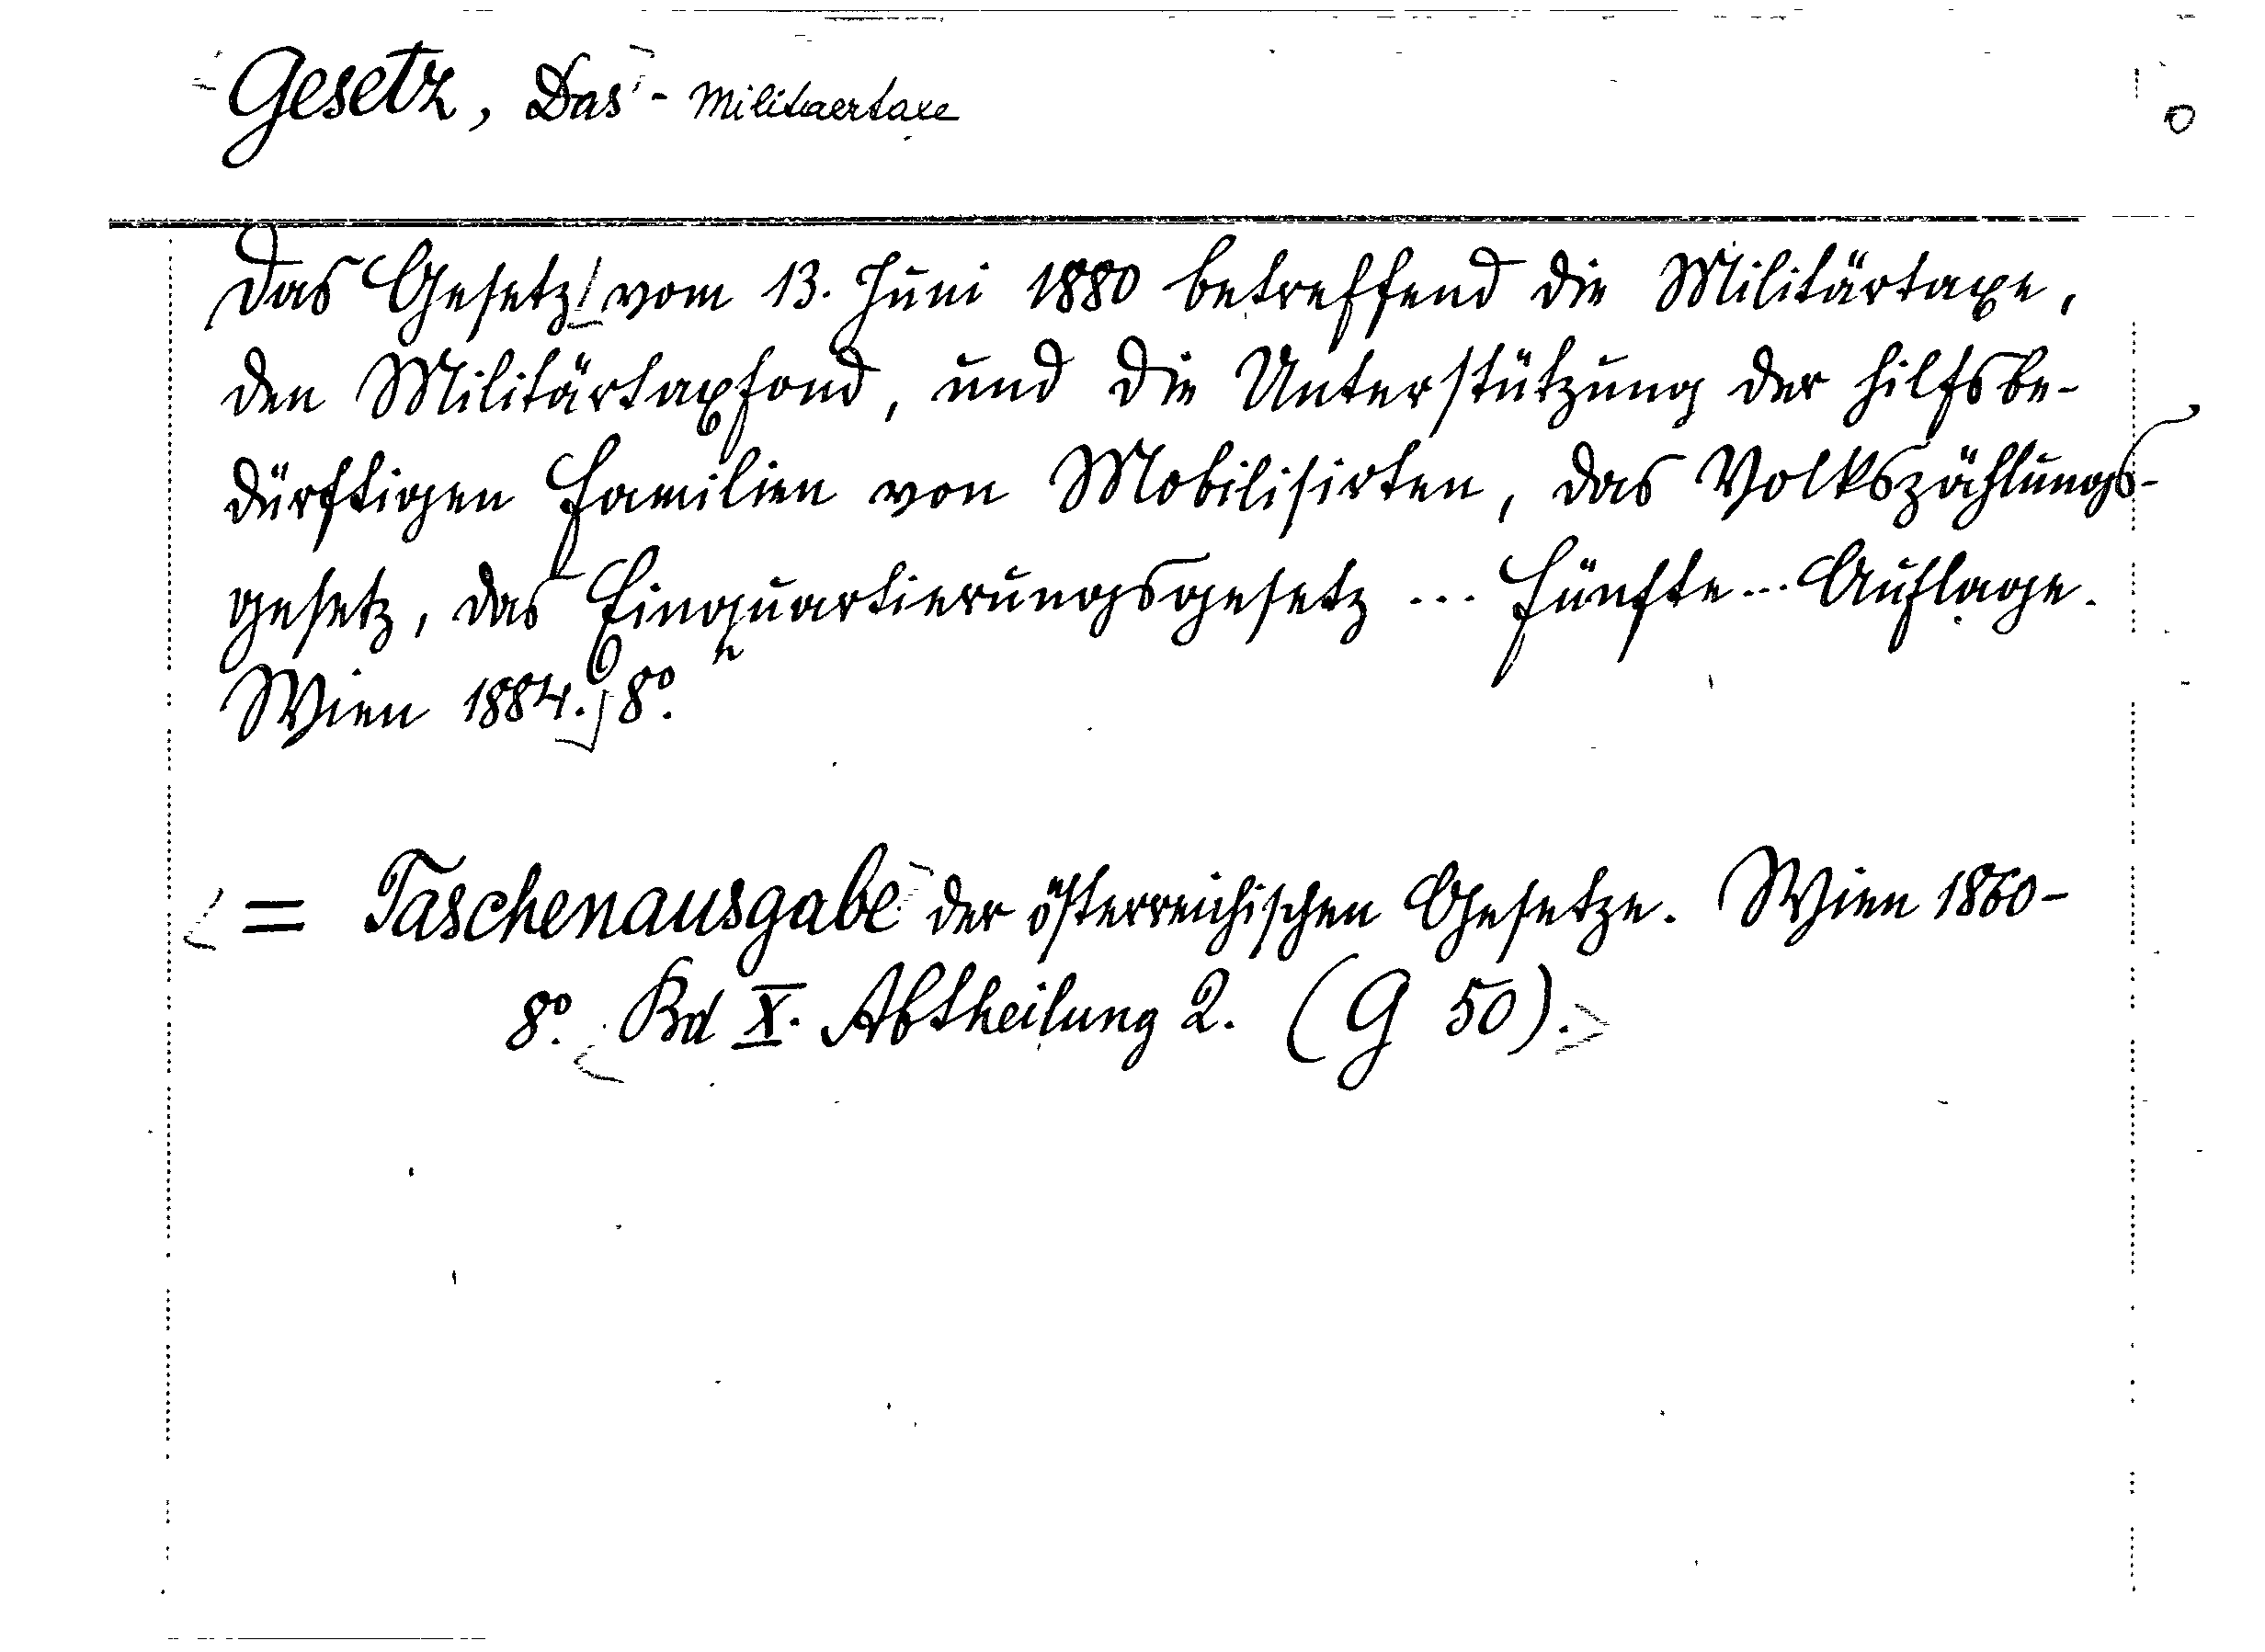 Gesetz, Das - Militaertaxe
Das Gesetz vom 13. Juni 1880 betreffend die Militärtaxe,
den Militärtaxfond, und die Unterstützung der hilfsbe-
dürftigen Familien von Mobilisirten, das Volkszählungs-
gesetz, das Einquartierungsgesetz ... Fünfte ... Auflage.
Wien 1884. 8°.
= Taschenausgabe der österreichischen Gesetze. Wien 1860-
8°. Bd X. Abtheilung 2. (G 50).